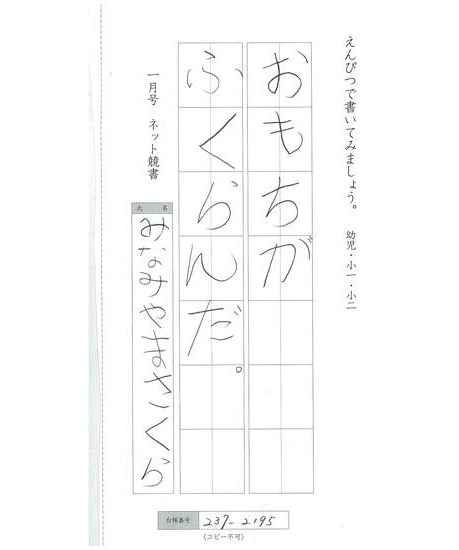 えんぴつで書いてみましょう。 幼児・小一・小二
おもちが
ふくらんだ。
一月号 ネット競書
氏名
みなみやまさくら
台帳番号 237-2195
(コピー不可)